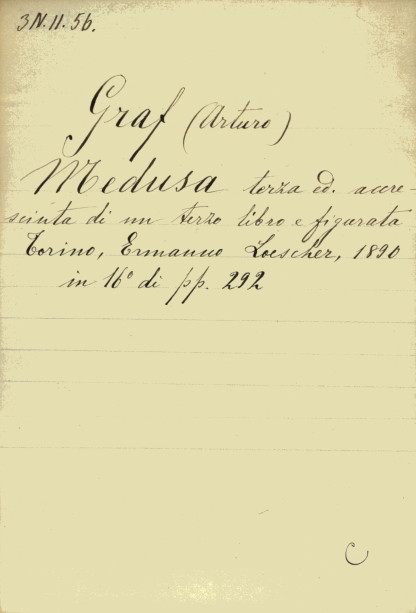 3 N. 11. 56.
Graf (Arturo)
Medusa terza ed. accre-
sciuta di un terzo libro e figurata
Torino, Ermanno Loescher, 1890
in 16° di pp. 292
C